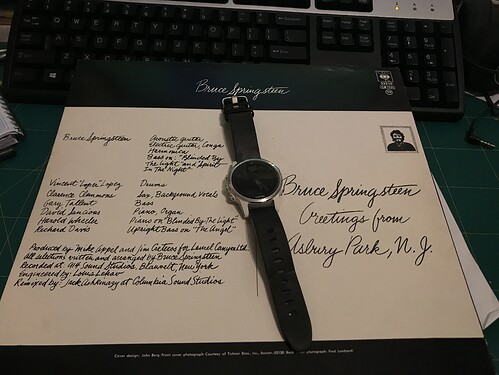 Bruce Springsteen
Bruce Springsteen
Acoustic guitar
Electric Guitar, Conga
Harmonica
Bass on "Blinded By
The Light" and "Spirit
In The Night"
Vincent "Loper" Lopez Drums
Clarence Clemmons Sax, Background Vocals
Gary Tallent Bass
David Sancious Piano, Organ
Harold Wheeler Piano on "Blinded By The Light"
Richard Davis Upright Bass on "The Angel"
Produced by: Mike Appel and Jim Cretecos for Laurel Canyon Ltd.
All selections written and arranged by Bruce Springsteen
Recorded at: 914 Sound Studios, Blauvelt, New York
Engineered by: Louis Lahav
Remixed by: Jack Ashkinazy at Columbia Sound Studios
Bruce Springsteen
Greetings from
Asbury Park, N.J.
Cover design: John Berg Front cover photograph Courtesy of Tichnor Bros., Inc., Boston photograph: Fred Lombardi